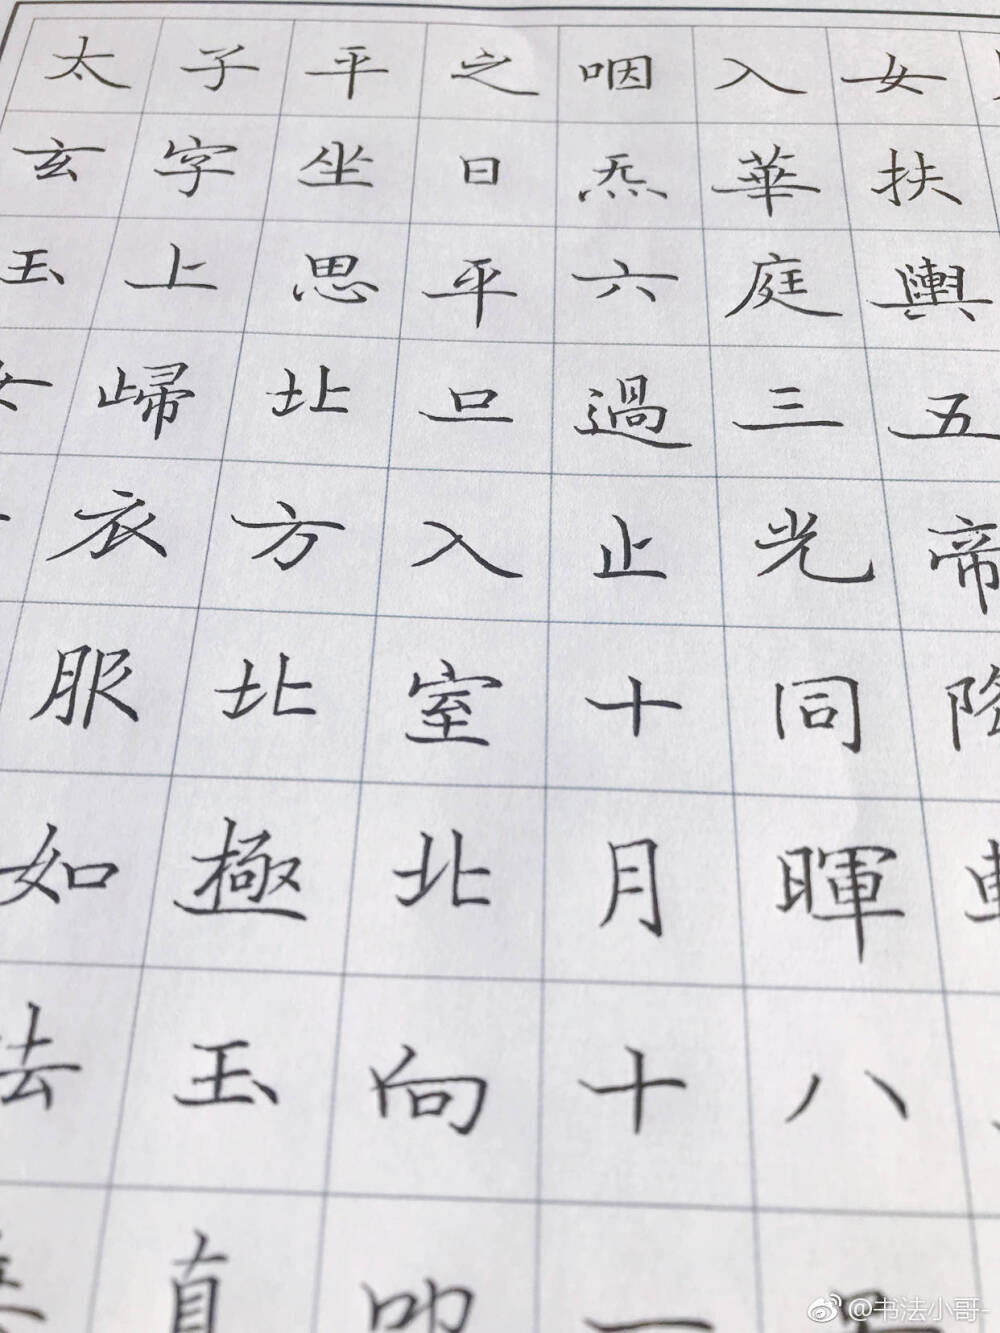 女扶輿五帝降
入華庭三光同暉八
咽炁六過止十月十一
之日平旦入室北向叩
平坐思北方北極玉真
子字上歸衣服如法
太玄玉女
@书法小哥-